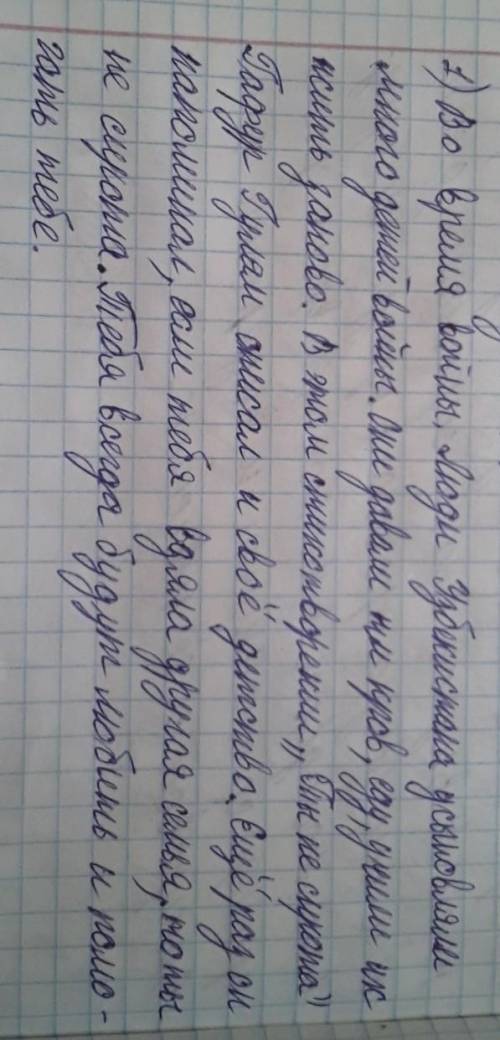 1) Во время войны, люди Узбекистана усыновляли
много детей войны. Они давали им кров, еду, учили их
жить заново. В этом стихотворении „Ты не сирота"
Гафур Гулям описал и своё детство. Ещё раз он
напоминал, если тебя взяла другая семья, то ты
не сирота. Тебя всегда будут любить и помо-
гать тебе.